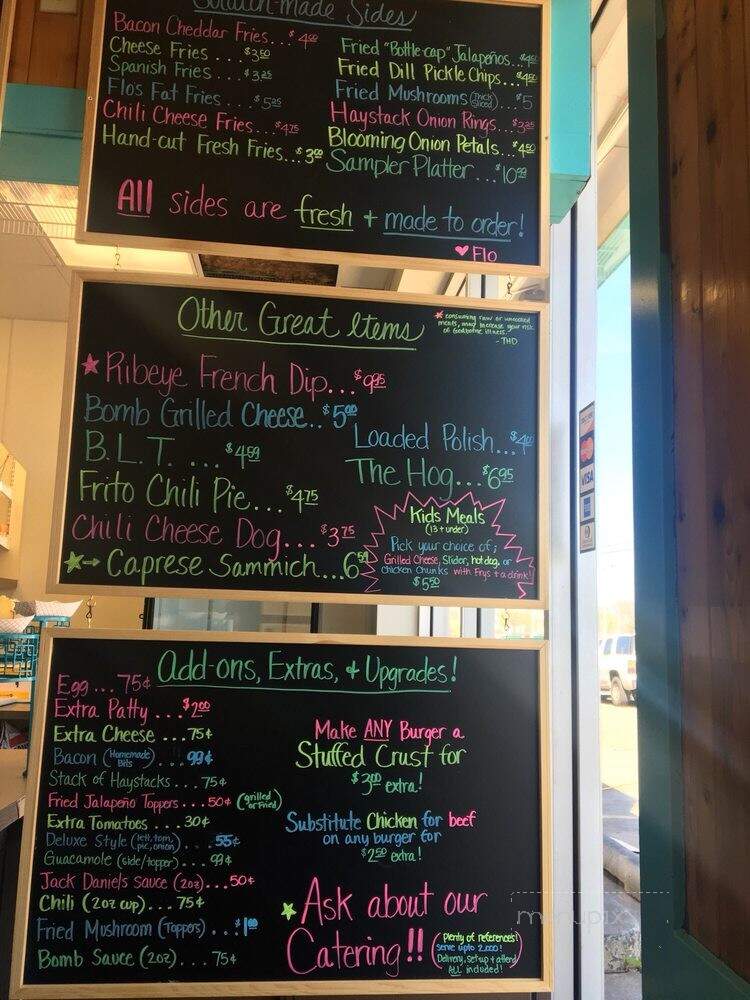 Scratch-made Sides
Bacon Cheddar Fries...$4
Cheese Fries ... $3.50
Spanish Fries ... $3.25
Flo's Fat Fries .... $5.25
Chili Cheese Fries...$4.75
Hand-cut Fresh Fries...$3.00
Fried "Bottle-cap" Jalapeños...
Fried Dill Pickle Chips...$4.50
Fried Mushrooms (Thick Sliced)...$5
Haystack Onion Rings...$3.25
Blooming Onion Petals...$4.50
Sampler Platter...$10.99
All sides are fresh + made to order!
♥ Flo
Other Great Items
* consuming raw or uncooked
meats, may increase your risk
of foodborne illness.
- THD
★ Ribeye French Dip...$9.95
Bomb Grilled Cheese...$5.00
B.L.T. ... $4.59
Frito Chili Pie...$4.75
Chili Cheese Dog....$3.75
★→ Caprese Sammich...6.59
Loaded Polish...$4
The Hog...$6.95
Kids Meals
(13 + under)
Pick your choice of;
Grilled Cheese, Slider, hot dog, or
chicken chunks with Frys + a drink!
$5.50
Add-ons, Extras, + Upgrades!
Egg ... 75¢
Extra Patty ... $2.00
Extra Cheese ... 75¢
Bacon (Homemade Bits) ... 99¢
Stack of Haystacks .... 75¢
Fried Jalapeño Toppers ... 50¢ (grilled or Fried)
Extra Tomatoes .... 30¢
Deluxe Style (lett, tom, pic, onion) ... 55¢
Guacamole (side/topper) ... 99¢
Jack Daniels Sauce (2oz)...50¢
Chili (2oz cup)....75¢
Fried Mushroom (Toppers)...$1.00
Bomb Sauce (2oz)....75¢
Make ANY Burger a
Stuffed Crust for
$3.00 extra!
Substitute Chicken for beef
on any burger for
$2.50 extra!
★ Ask about our
Catering!!
(Plenty of references!
serve upto 2,000!
Delivery, set-up + attend
ALL included!)
VISA
menupix